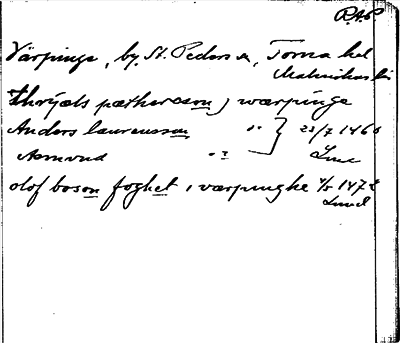 R.A.P
Värpinge, by, St. Peders sn, Torna hd
Malmöhus län
thrysls pæthersson, i wærpinge
Anders laurensson " } 22/7 1460
Asmund " Lund
olof boson foghet i værpinghe 4/5 1472
Lund